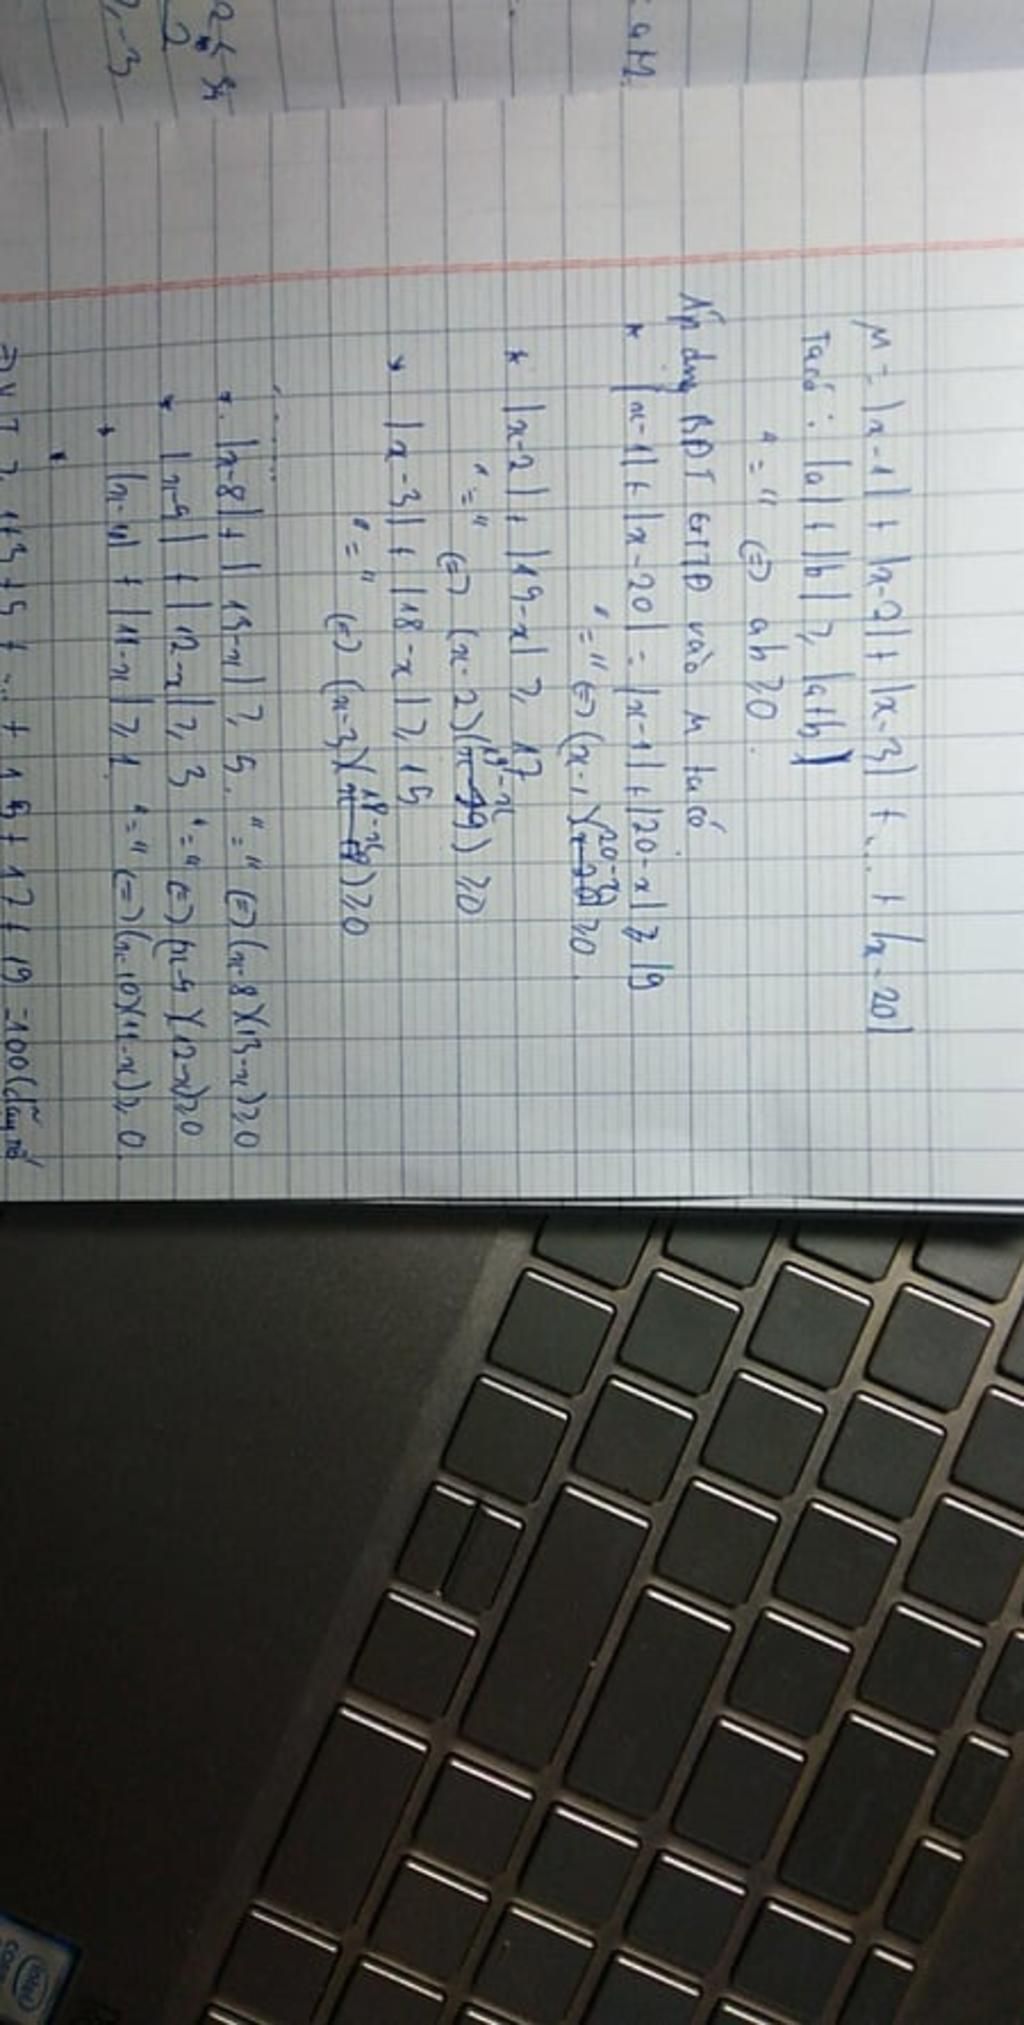 M = |x-1| + |x-2| + |x-3| + ... + |x-20|
Ta có: |a| + |b| ≥ |a+b|
"=" (=) ab ≥ 0.
Áp dụng BĐT GTTĐ vào M ta có
* |x-1| + |x-20| = |x-1| + |20-x| ≥ 19
"=" (=) (x-1)(20-x) ≥ 0.
* |x-2| + |19-x| ≥ 17
"=" (=) (x-2)(19-x) ≥ 0
* |x-3| + |18-x| ≥ 15
"=" (=) (x-3)(18-x) ≥ 0
.......
* |x-8| + |13-x| ≥ 5. "=" (=) (x-8)(13-x) ≥ 0
* |x-9| + |12-x| ≥ 3 "=" (=) (x-9)(12-x) ≥ 0
* + |11-x| ≥ 1 "=" (=) (x-10)(11-x) ≥ 0.
1+3+5+...+15+17+19 = 100 (dãy
aM
2, -3
intel
CORE